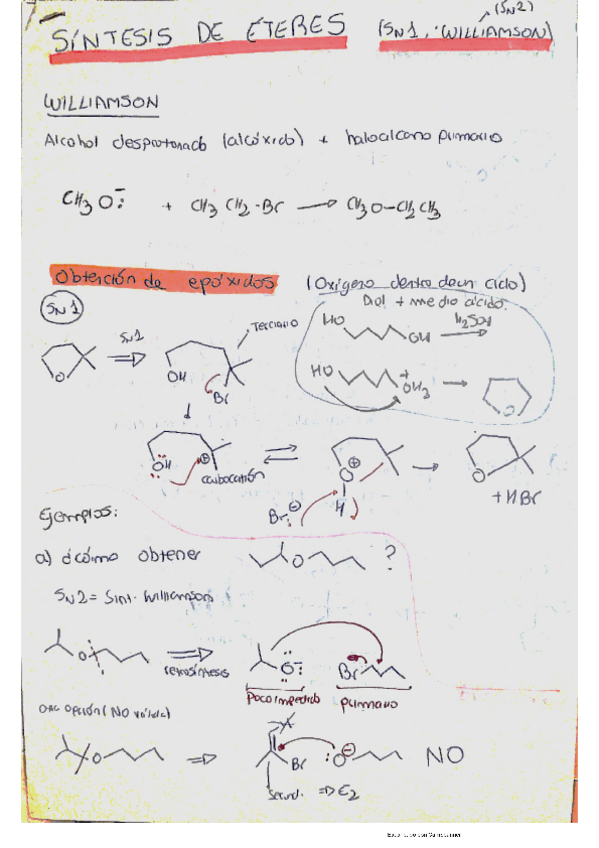 (SN2)
SÍNTESIS DE ÉTERES (SN1, WILLIAMSON)
WILLIAMSON
Alcohol desprotonado (alcóxido) + haloalcano primario
CH3O:⁻ + CH3CH2-Br → CH3O-CH2CH3
Obtención de epóxidos (Oxígeno dentro de un ciclo)
SN1
Diol + medio ácido.
HO OH H2SO4
SN1 Terciario
OH Br
HO OH2 + O
O
OH ⊕ carbocatión
O ⊕ H
O
Br ⊖
+ HBr
Ejemplos:
a) ¿cómo obtener O ?
SN2 = Sint. Williamson
O retrosíntesis O:⁻ Br
Poco impedido primario
Otra opción (NO válida)
O ⇒ Br :O ⊖ NO
Secund. ⇒ E2